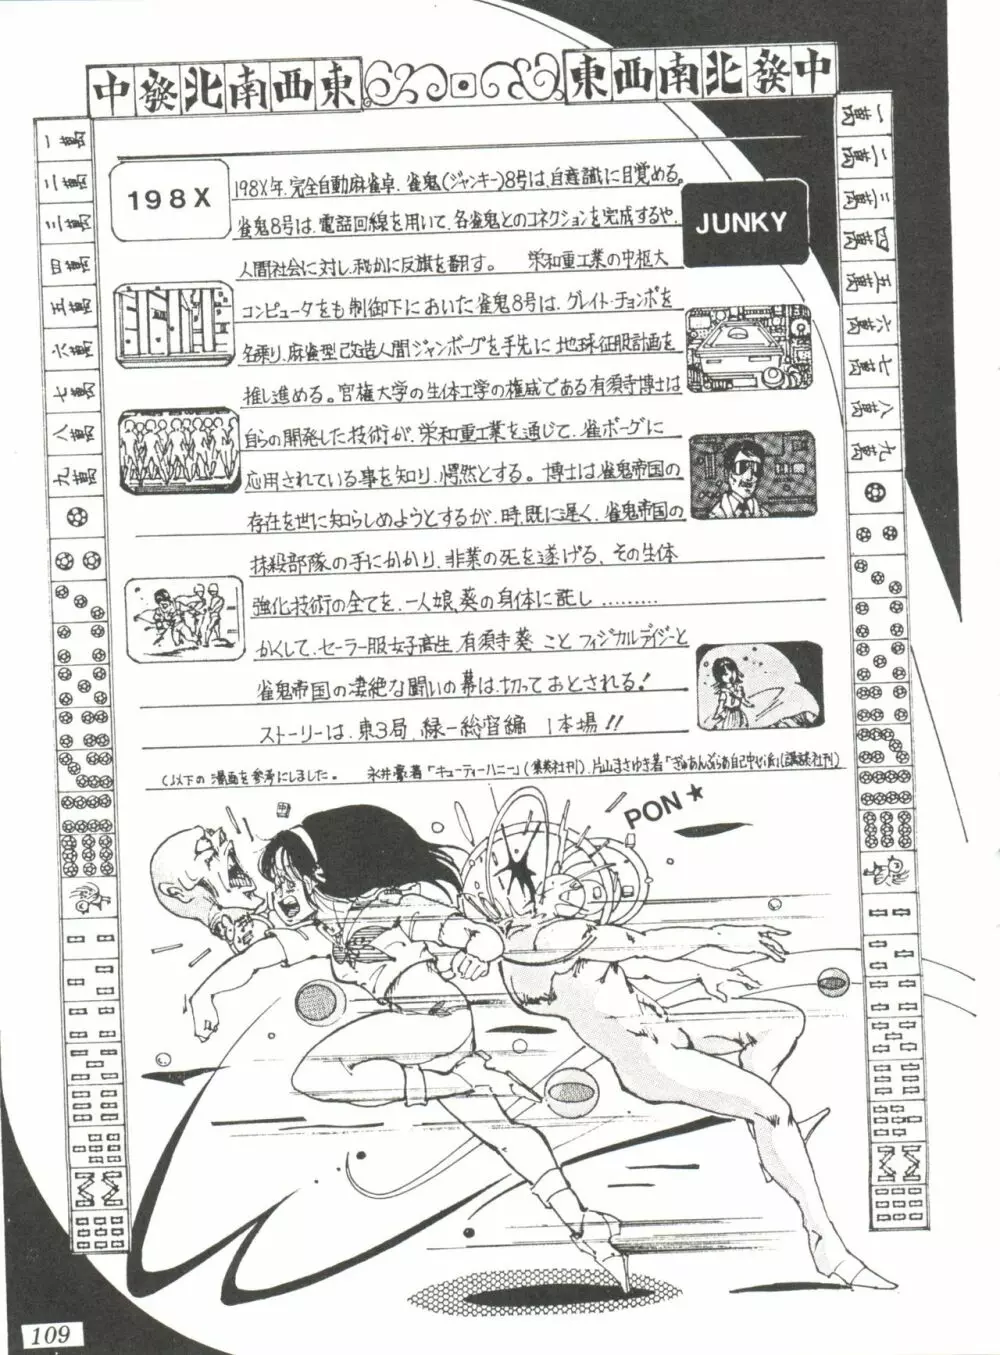 中發北南西東 東西南北發中
198X
JUNKY
198X年、完全自動麻雀卓、雀鬼(ジャンキー)8号は、自意識に目覚める。
雀鬼8号は、電話回線を用いて、各雀鬼とのコネクションを完成するや、
人間社会に対し、秘かに反旗を翻す。 栄和重工業の中枢大
コンピュータをも制御下においた雀鬼8号は、グレイト・チョンボを
名乗り、麻雀型改造人間ジャンボーグを手先に地球征服計画を
推し進める。官権大学の生体工学の権威である有須寺博士は
自らの開発した技術が、栄和重工業を通じて、雀ボーグに
応用されている事を知り、愕然とする。博士は雀鬼帝国の
存在を世に知らしめようとするが、時、既に遅く、雀鬼帝国の
抹殺部隊の手にかかり、非業の死を遂げる、その生体
強化技術の全てを、一人娘、葵の身体に託し………
かくして、セーラー服女子高生、有須寺葵 こと フィジカルデイジーと
雀鬼帝国の凄絶な闘いの幕は、切っておとされる!
ストーリーは、東3局、緑一総督編 1本場!!
(以下の漫画を参考にしました。 永井豪著「キューティーハニー」(集英社刊)、片山まさゆき著「ぎゅわんぶらあ自己中心派」(講談社刊)
PON★
一萬
二萬
三萬
四萬
五萬
六萬
七萬
八萬
九萬
一萬
二萬
三萬
四萬
五萬
六萬
七萬
八萬
九萬
中
109